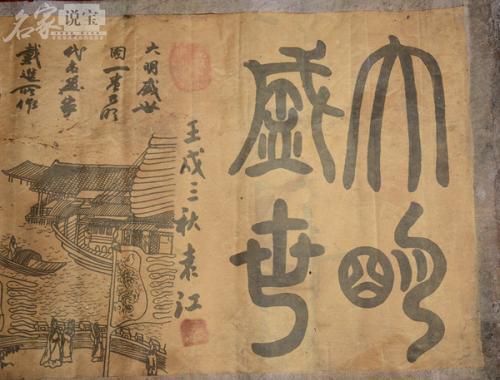 名家说宝
大明
盛世
壬戌三秋袁江
大明盛世
图一卷乃明
代名画家
戴进所作